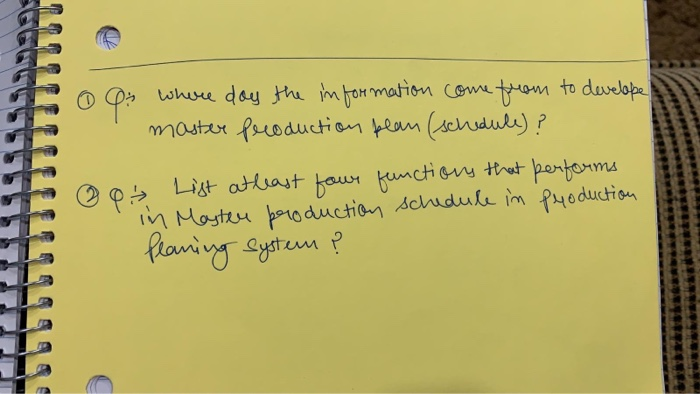 ① Q:→ where does the information come from to develope
master production plan (schedule) ?
② Q:→ List atleast four functions that performs
in Master production schedule in production
planing system ?